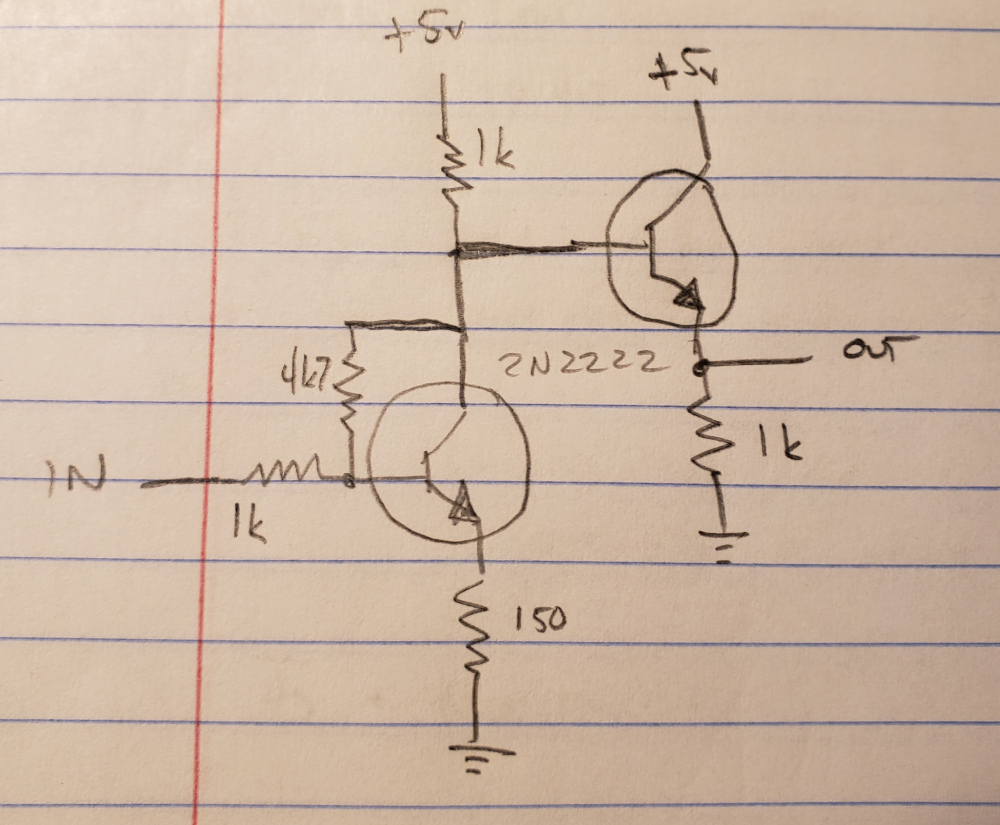 +5v
+5v
1k
2N2222
OUT
4k7
1k
IN
1k
150